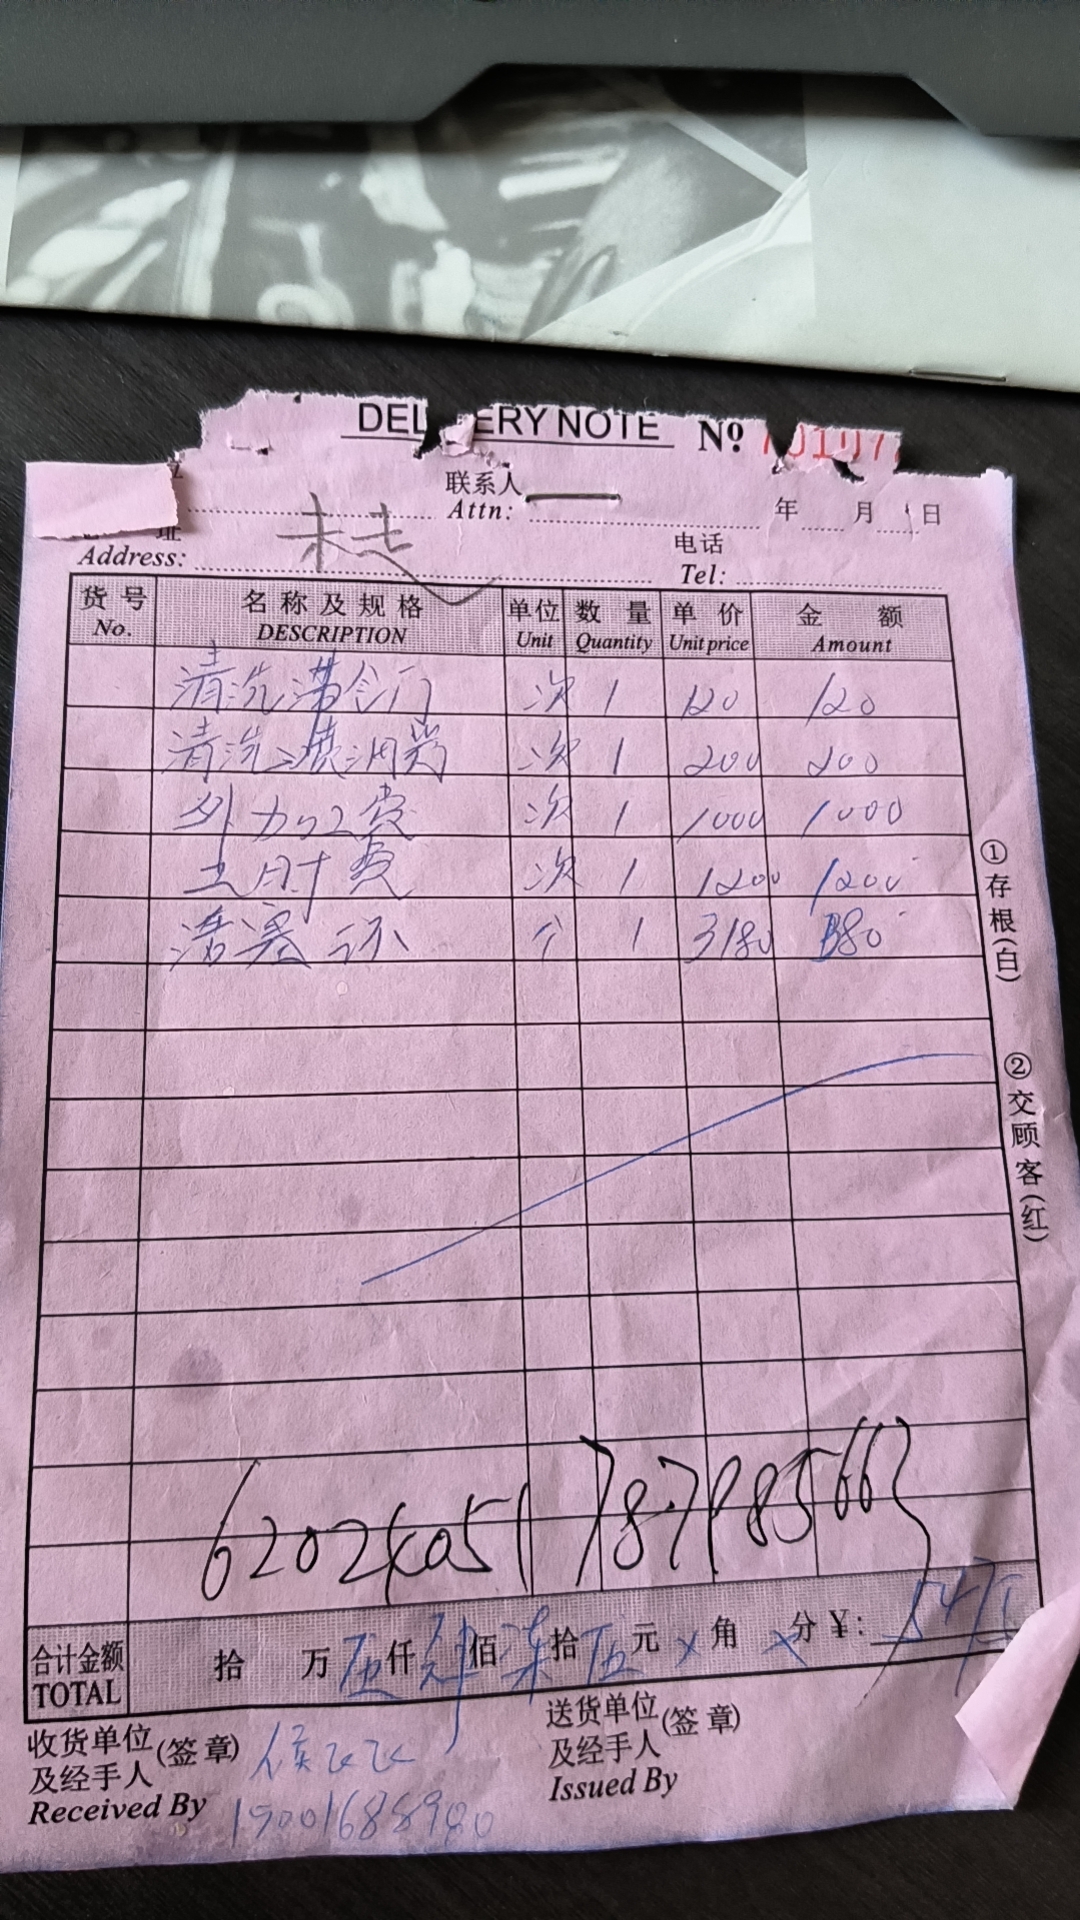 DELIVERY NOTE No
联系人
Attn:
年 月 日
址
Address:
电话
Tel:
货号 名称及规格 单位 数量 单价 金额
No. DESCRIPTION Unit Quantity Unit price Amount
清洗 次 1 120 120
清洗 次 1 200 200
外加工费 次 1 1000 1000
工时费 次 1 1200 1200
活塞环 个 1 3180
①存根(白)
②交顾客(红)
合计金额 拾 万 伍 仟 肆 佰 柒 拾 伍 元 × 角 × 分 ¥:
TOTAL
收货单位 (签章)
及经手人
Received By
送货单位 (签章)
及经手人
Issued By